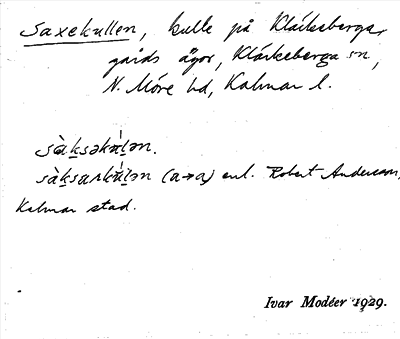 Saxekullen, kulle på Kläckeberga,
gårds ägor, Kläckeberga sn,
N. Möre hd, Kalmar l.
sàksəkúlən.
sàksarkúlən (a→a) enl. Robert Anderson,
Kalmar stad.
Ivar Modéer 1929.